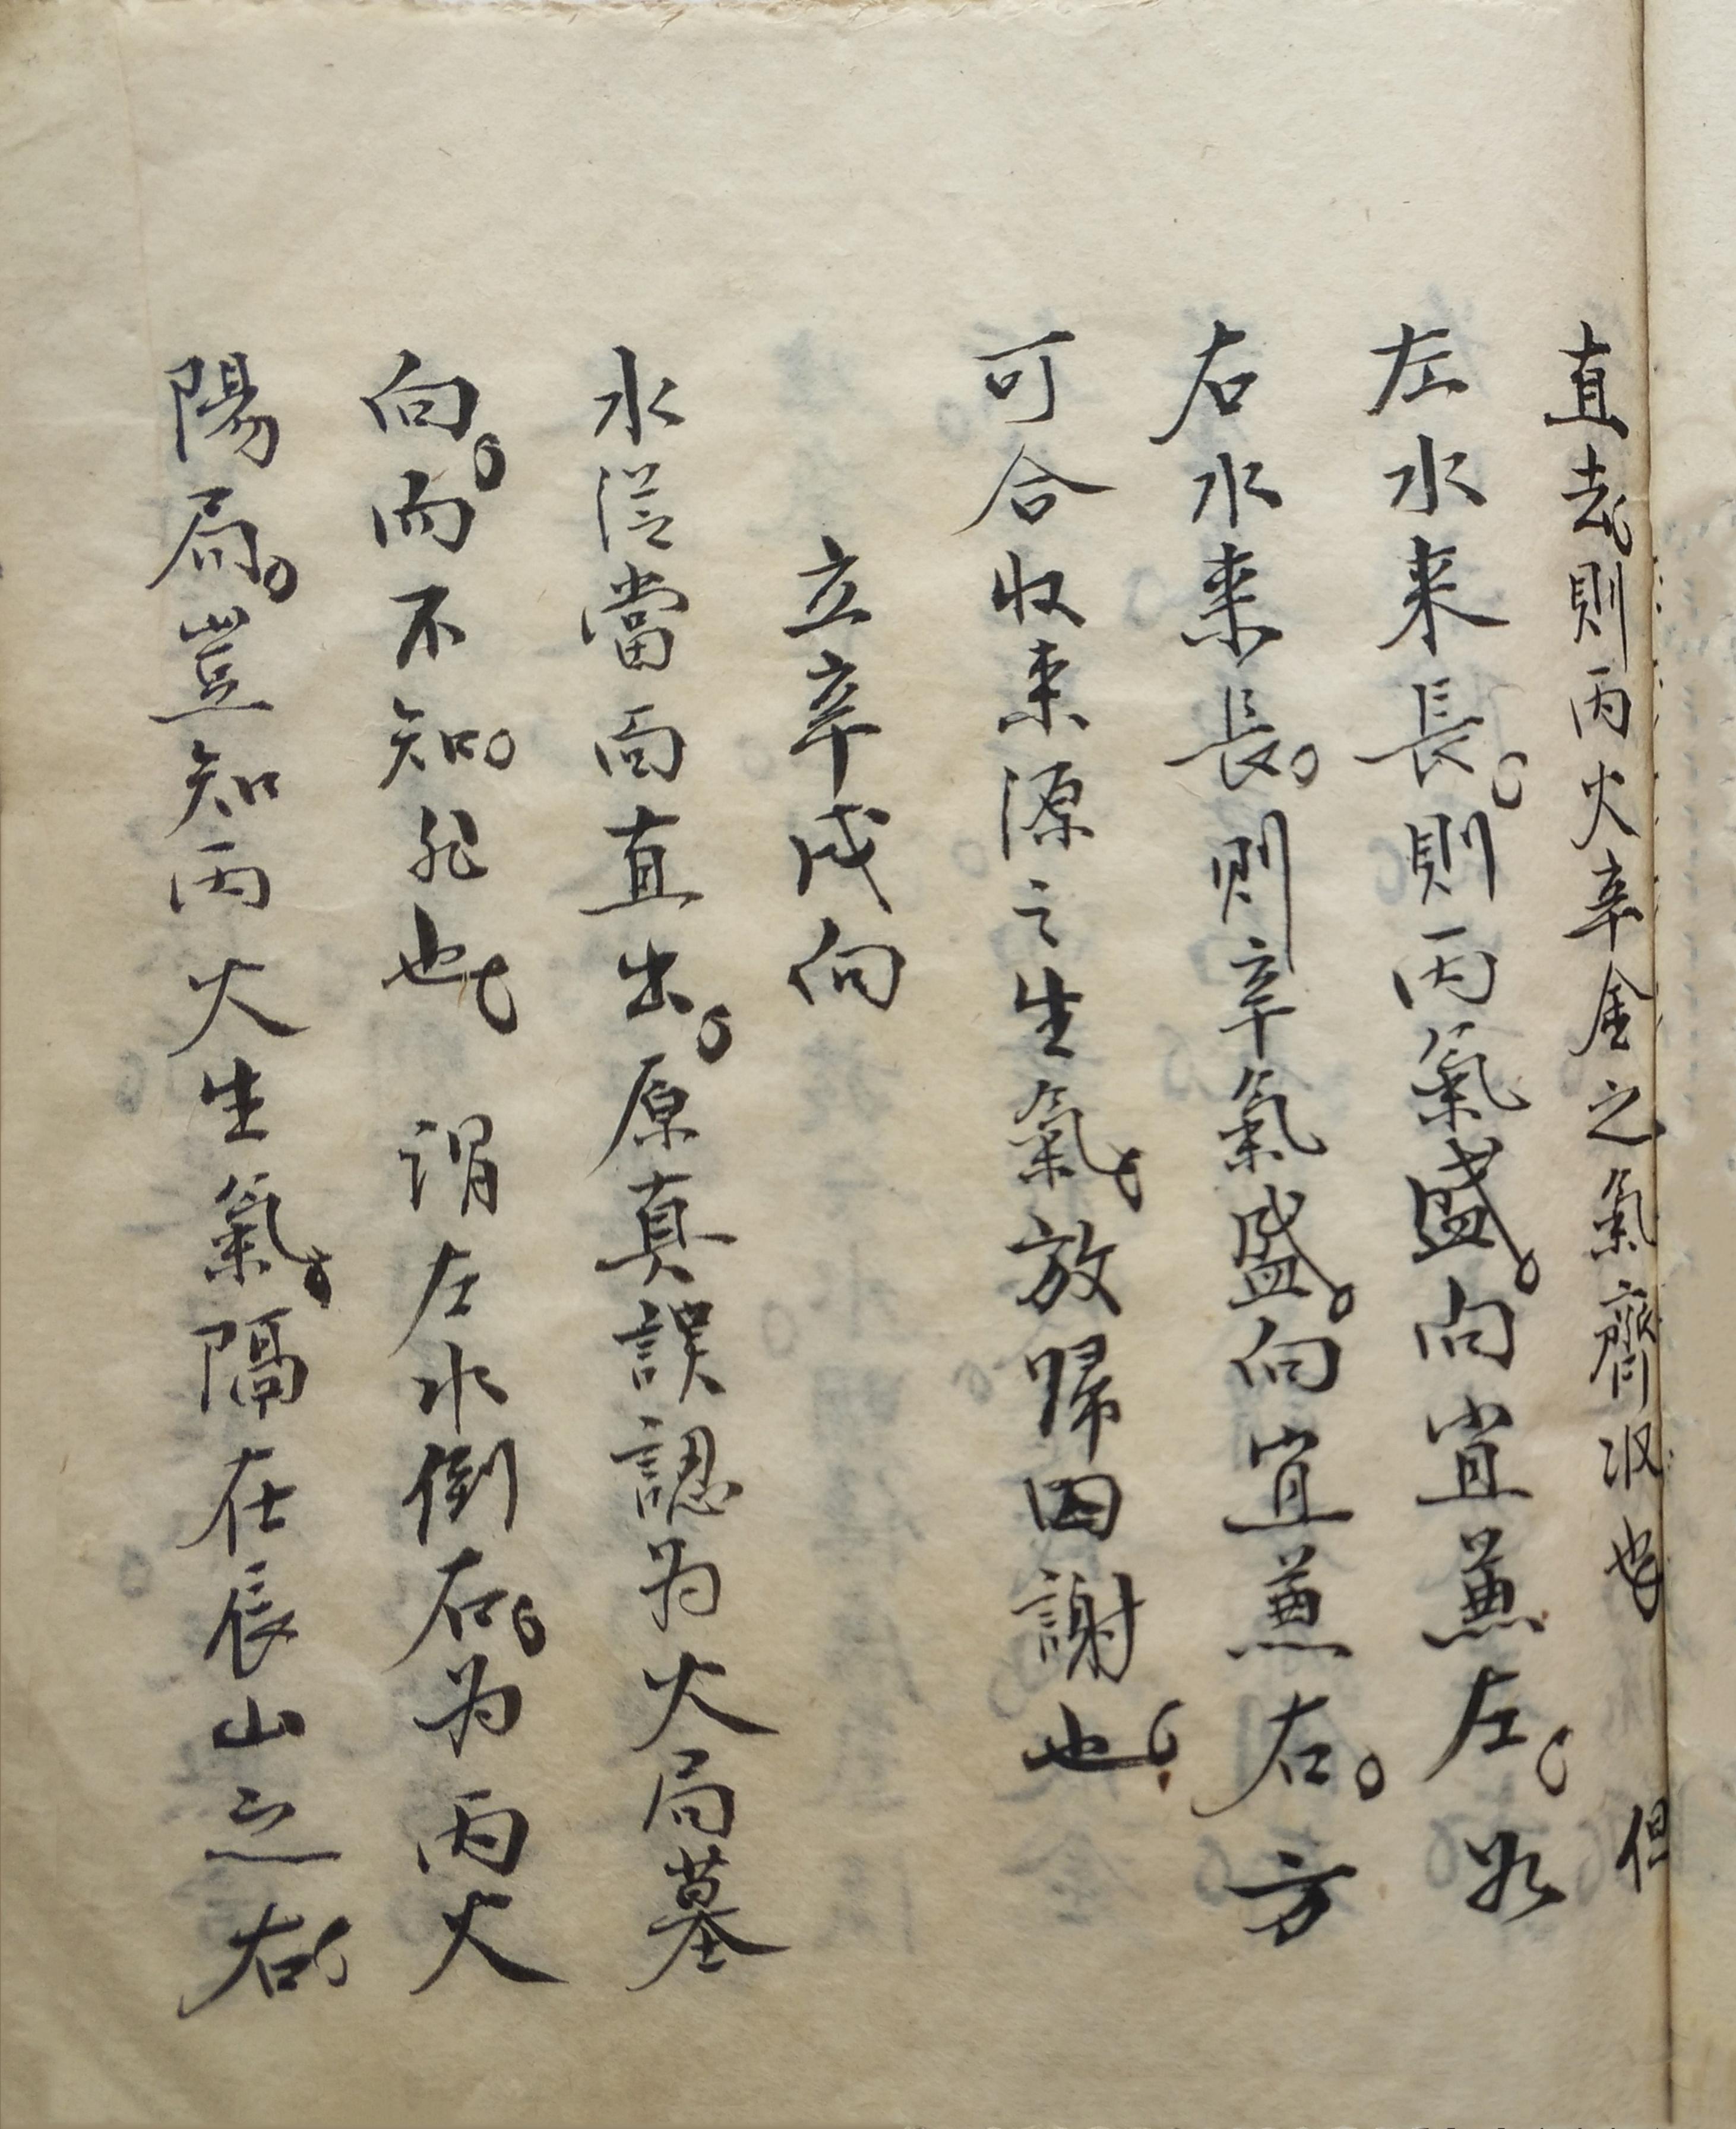 直去則丙火辛金之氣齊收也 但
左水来長。則丙氣盛。向宜兼左。如
右水来長。則辛氣盛。向宜兼右。方
可合收来源之生氣。放歸囚謝也。
立辛戌向
水從當面直出。原真誤認为火局墓
向。而不知。非也 謂左水倒右。为丙火
陽局。豈知丙火生氣。隔在長山之右。